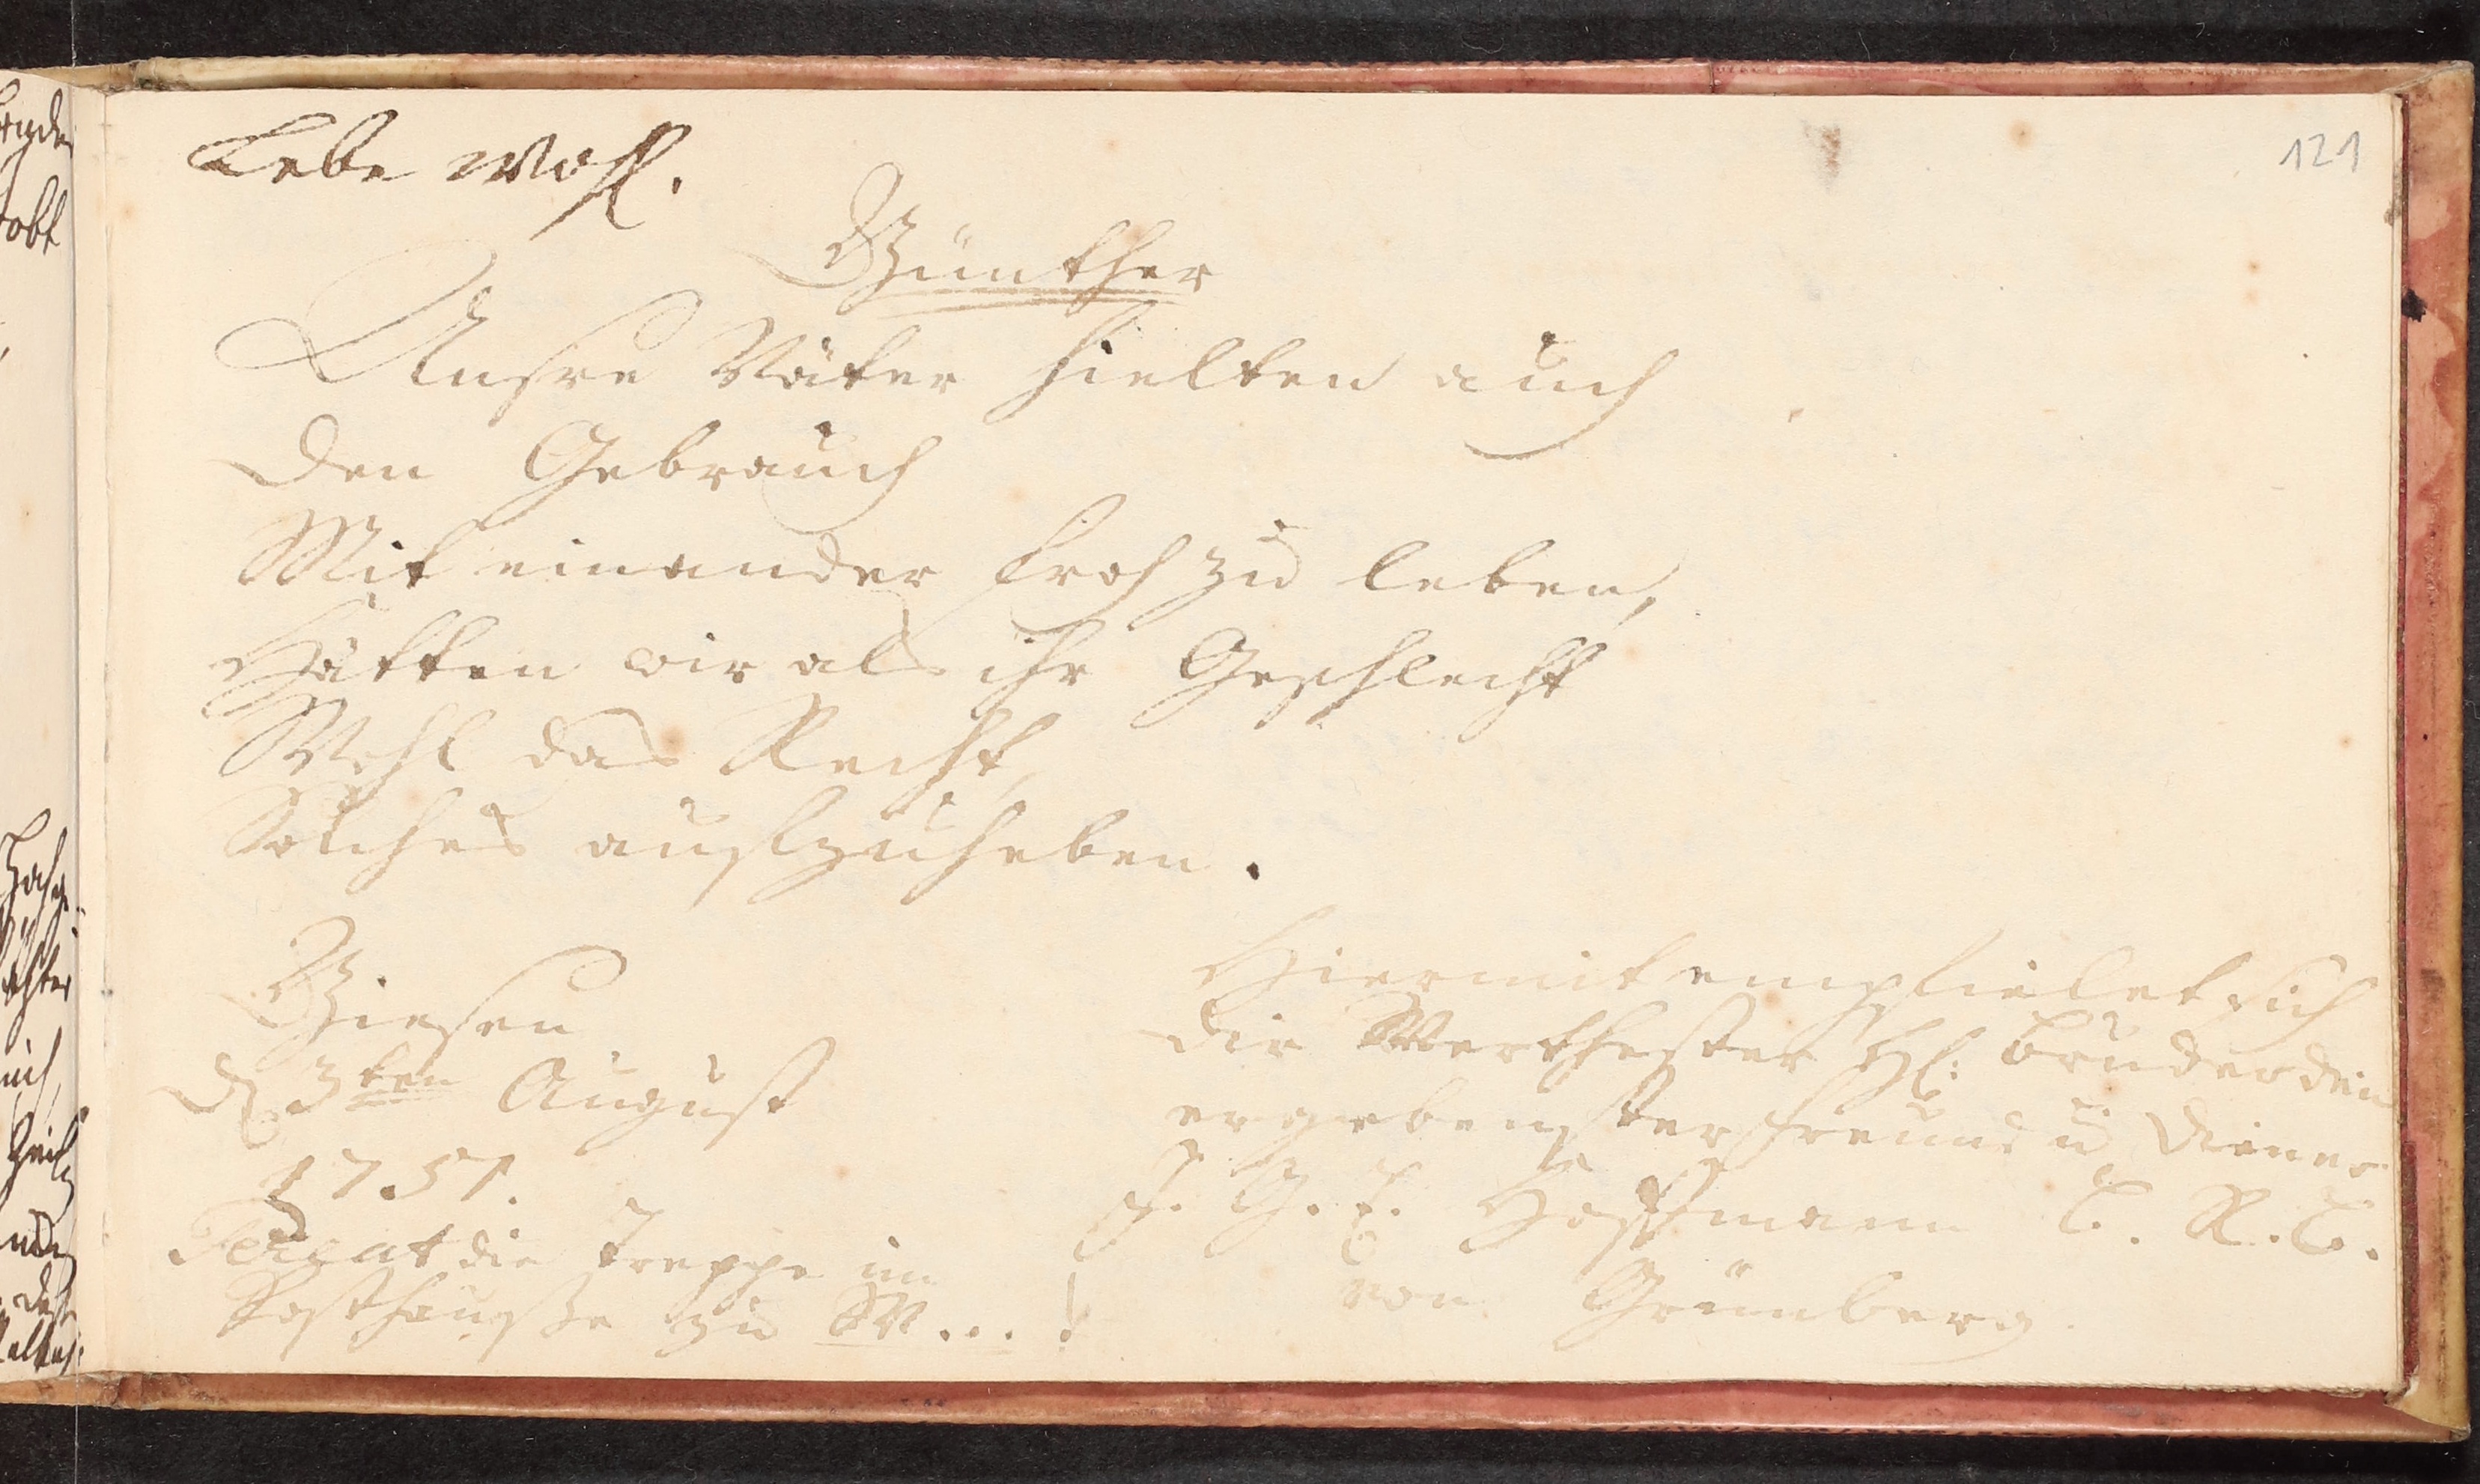 121
Lebe wohl.
Günther
Unsre Väter hielten auch
den Gebrauch
Mit einander froh zu leben,
Hätten wir als ihr Geschlecht
Wohl das Recht,
Solches aufzuheben.
Giesen
d. 3ten August
1757.
Pereat die Treppe im
Posthauße zu W...!
Hiermit empfielet sich
dir Werthester H: Bruder dein
ergebenster Freund u Diener
J. G. E. Hoffmann C. R. C.
von Grünberg